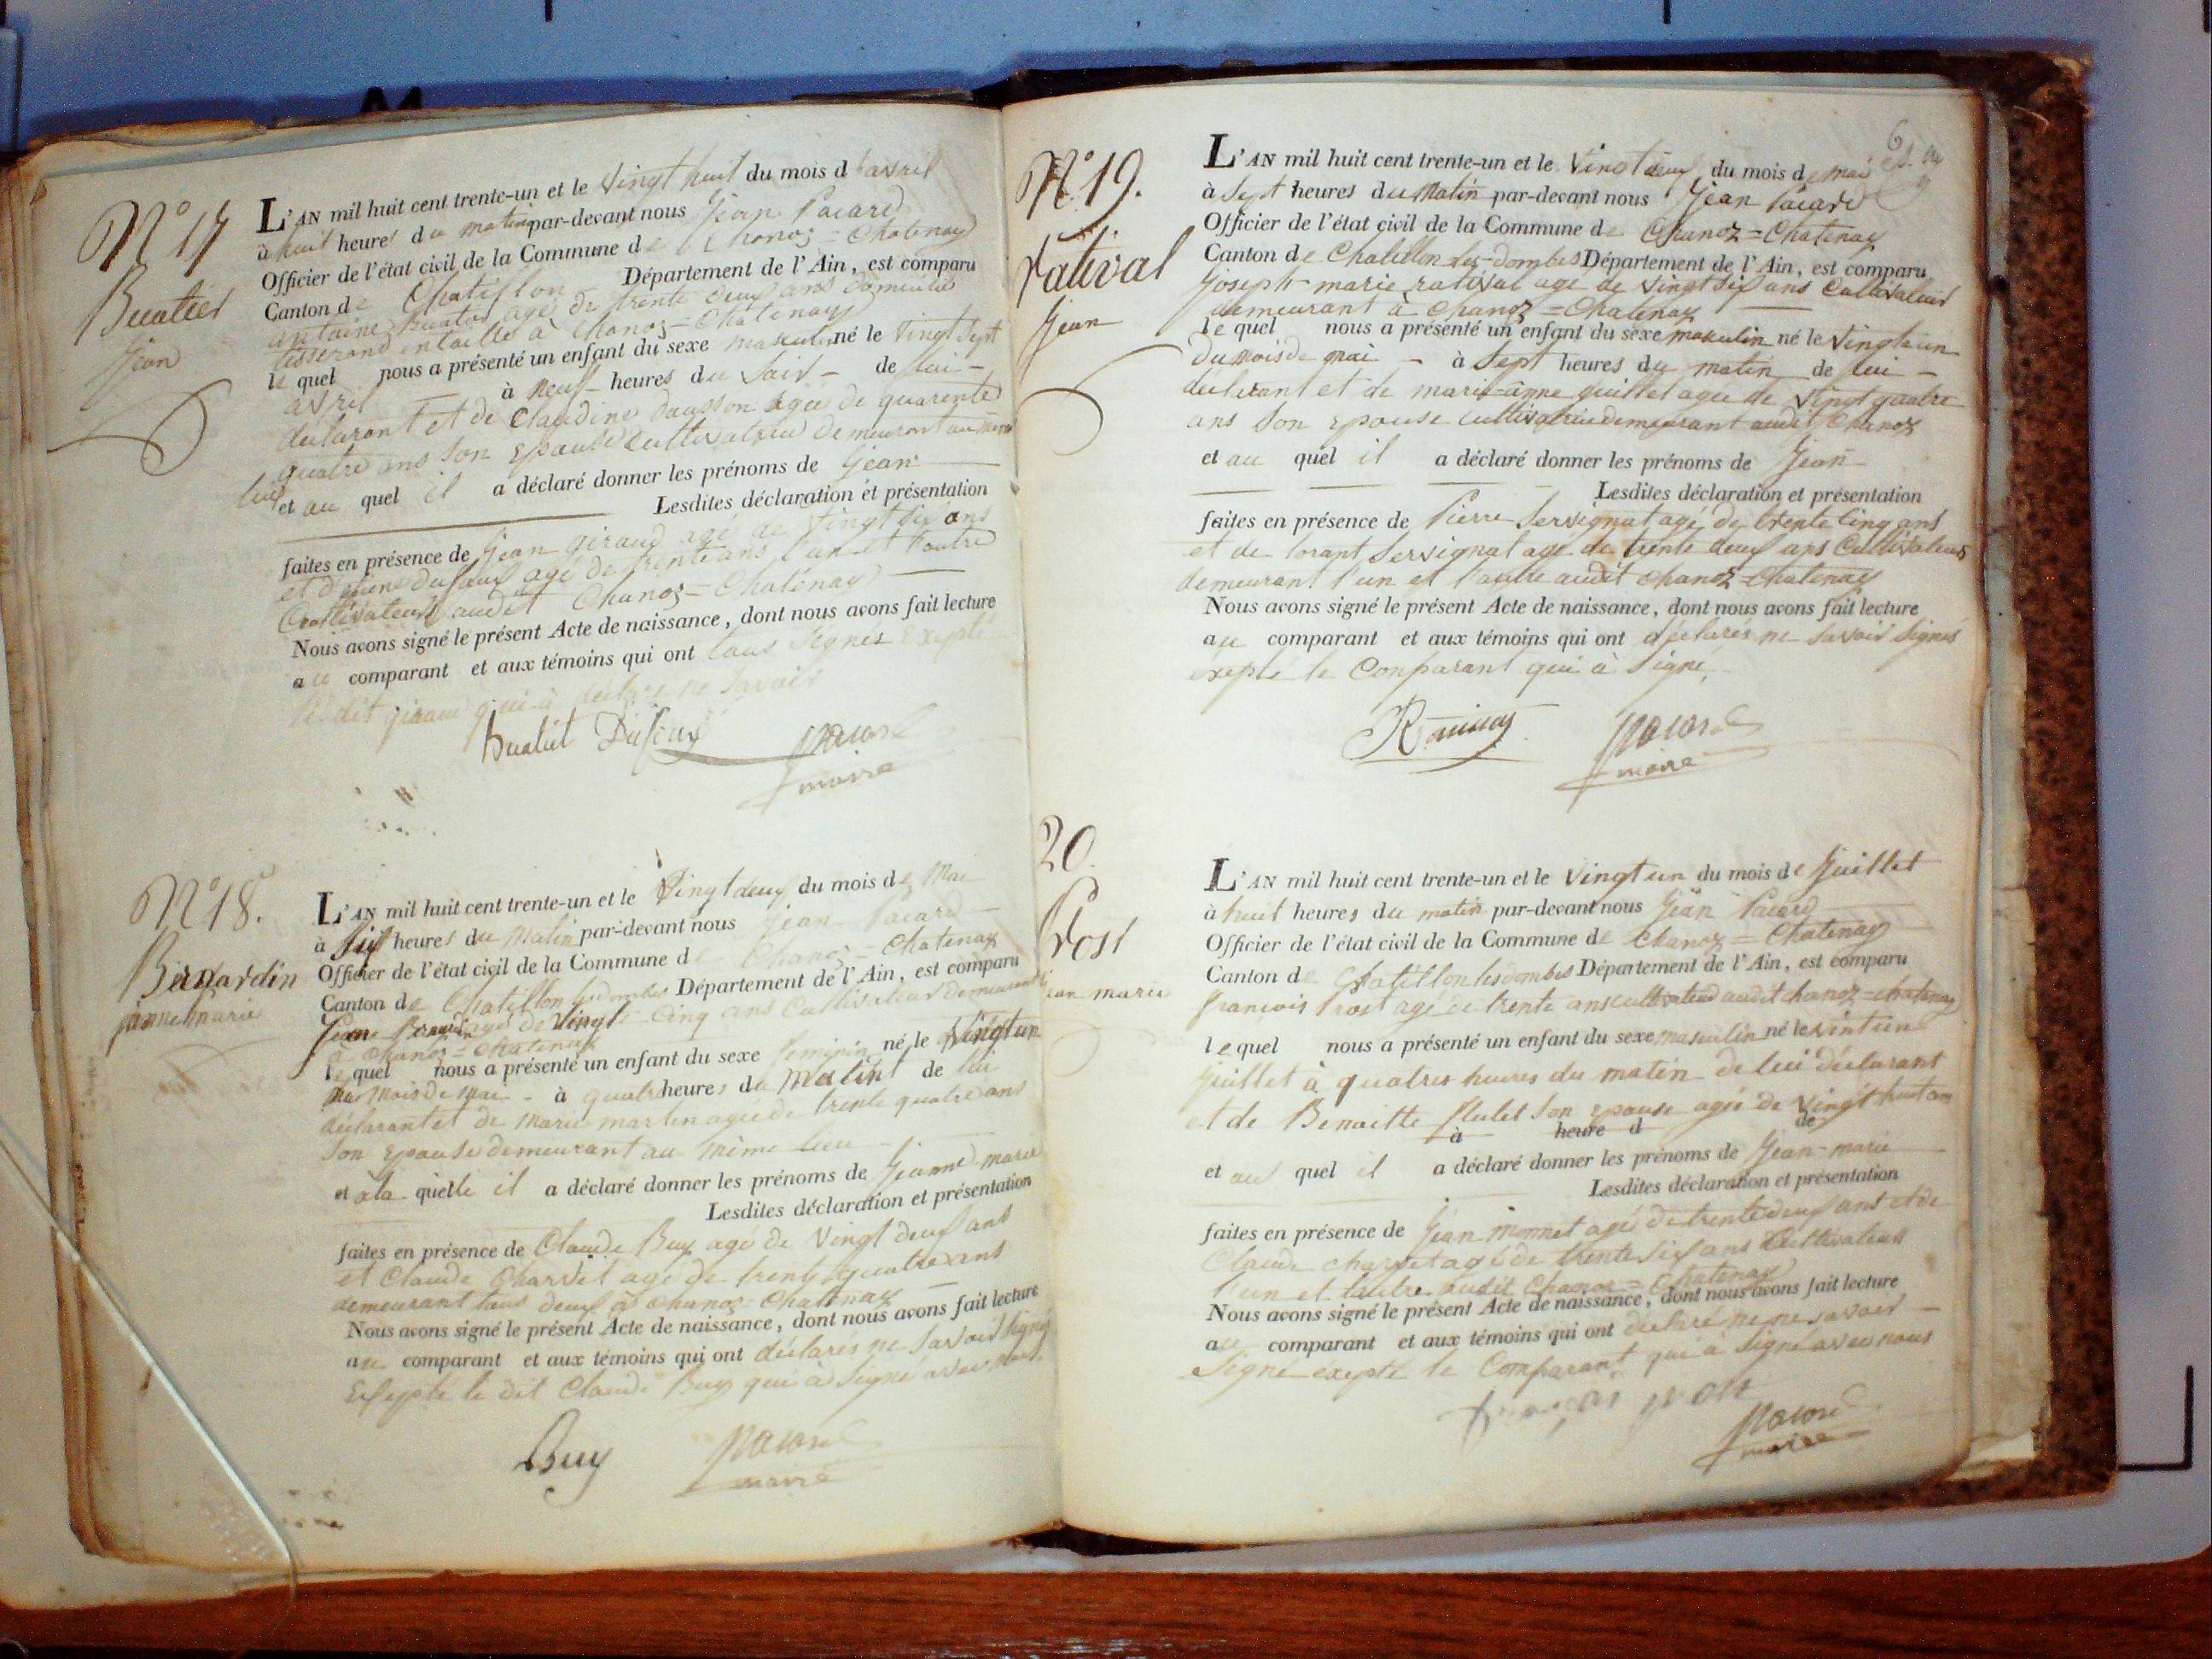 N° 17
Buatier
Jean
L'AN mil huit cent trente-un et le Vingt huit du mois d'avril
à huit heures du matin par-devant nous Jean Pacard
Officier de l'état civil de la Commune de Chanoz = Chatenay
Canton de Chatillon Département de l'Ain, est comparu
antoine Buatier agé de trente deux ans domicilié
tisserand en toille à Chanoz = Chatenay
le quel nous a présenté un enfant du sexe masculin né le Vingt Sept
avril à neuf heures du Soir - de lui -
déclarant et de Claudine agée de quarente
quatre ans Son Epouse Cultivatrice demeurant au même
lieu
et au quel il a déclaré donner les prénoms de Jean
Lesdites déclaration et présentation
faites en présence de Jean giraud agé de Vingt Six ans
et agé de trente ans l'un et l'autre
Cultivateurs audit Chanoz = Chatenay
Nous avons signé le présent Acte de naissance, dont nous avons fait lecture
au comparant et aux témoins qui ont tous Signés Exepté
le dit giraud qui à déclaré ne Savoir
Buatié Dufour Pacard
maire
N° 18.
Bernardin
jeanne marie
L'AN mil huit cent trente-un et le Vingt deux du mois de Mai
à Six heures du Matin par-devant nous Jean Pacard
Officier de l'état civil de la Commune de Chanoz = Chatenay
Canton de Chatillon lesdombes Département de l'Ain, est comparu
Jean agé de Vingt = Cinq ans Cultivateur demeurant
à Chanoz = Chatenay
le quel nous a présenté un enfant du sexe feminin né le Vingt un
du Mois de Mai - à quatre heures du Matin de lui
déclarant et de Marie martin agée de trente quatre ans
Son Epouse demeurant au même lieu
et à la quelle il a déclaré donner les prénoms de Jeanne marie
Lesdites déclaration et présentation
faites en présence de Claude Buy agé de Vingt deux ans
et Claude Charvet agé de trente quatre ans
demeurant tous deux à Chanoz = Chatenay
Nous avons signé le présent Acte de naissance, dont nous avons fait lecture
au comparant et aux témoins qui ont déclarés ne Savoir Signés
Exepté le dit Claude Buy qui à Signé avec nous.
Buy Pacard
maire
N° 19.
ratival
Jean
L'AN mil huit cent trente-un et le Vingt deux du mois de mai
à Sept heures du Matin par-devant nous Jean Pacard
Officier de l'état civil de la Commune de Chanoz = Chatenay
Canton de Chatillon les-dombes Département de l'Ain, est comparu
Joseph-marie ratival agé de Vingt Six ans Cultivateur
demeurant à Chanoz = Chatenay
le quel nous a présenté un enfant du sexe masculin né le Vingt un
du mois de mai - à Sept heures du matin de lui -
déclarant et de marie-anne guillet agée de Vingt quatre
ans Son Epouse cultivatrice demeurant audit Chanoz
et au quel il a déclaré donner les prénoms de Jean
Lesdites déclaration et présentation
faites en présence de Pierre Servignat agé de trente Cinq ans
et de lorant Servignat agé de trente deux ans Cultivateurs
demeurant l'un et l'autre audit Chanoz = Chatenay
Nous avons signé le présent Acte de naissance, dont nous avons fait lecture
au comparant et aux témoins qui ont déclarés ne Savoir Signés
exepté le Conparant qui à Signé,
Pacard
maire
20.
Prost
jean marie
L'AN mil huit cent trente-un et le Vingt un du mois de Juillet
à huit heures du matin par-devant nous Jean Pacard
Officier de l'état civil de la Commune de Chanoz = Chatenay
Canton de Chatillon lesdombes Département de l'Ain, est comparu
françois Prost agé de trente ans cultivateur audit Chanoz = Chatenay
le quel nous a présenté un enfant du sexe masculin né le Vint un
Juillet à quatres heures du matin de lui déclarant
et de Benoitte flutet Son Epouse agée de Vingt huit ans
à heure d de
et au quel il a déclaré donner les prénoms de Jean-marie
Lesdites déclaration et présentation
faites en présence de Jean monnet agé de trente deux ans et de
Claude charvet agé de trente Six ans Cultivateurs
l'un et l'autre audit Chanoz = Chatenay
Nous avons signé le présent Acte de naissance, dont nous avons fait lecture
au comparant et aux témoins qui ont déclaré ne Savoir
Signé exepté le Comparant qui à Signé avec nous
françois prost
Pacard
maire